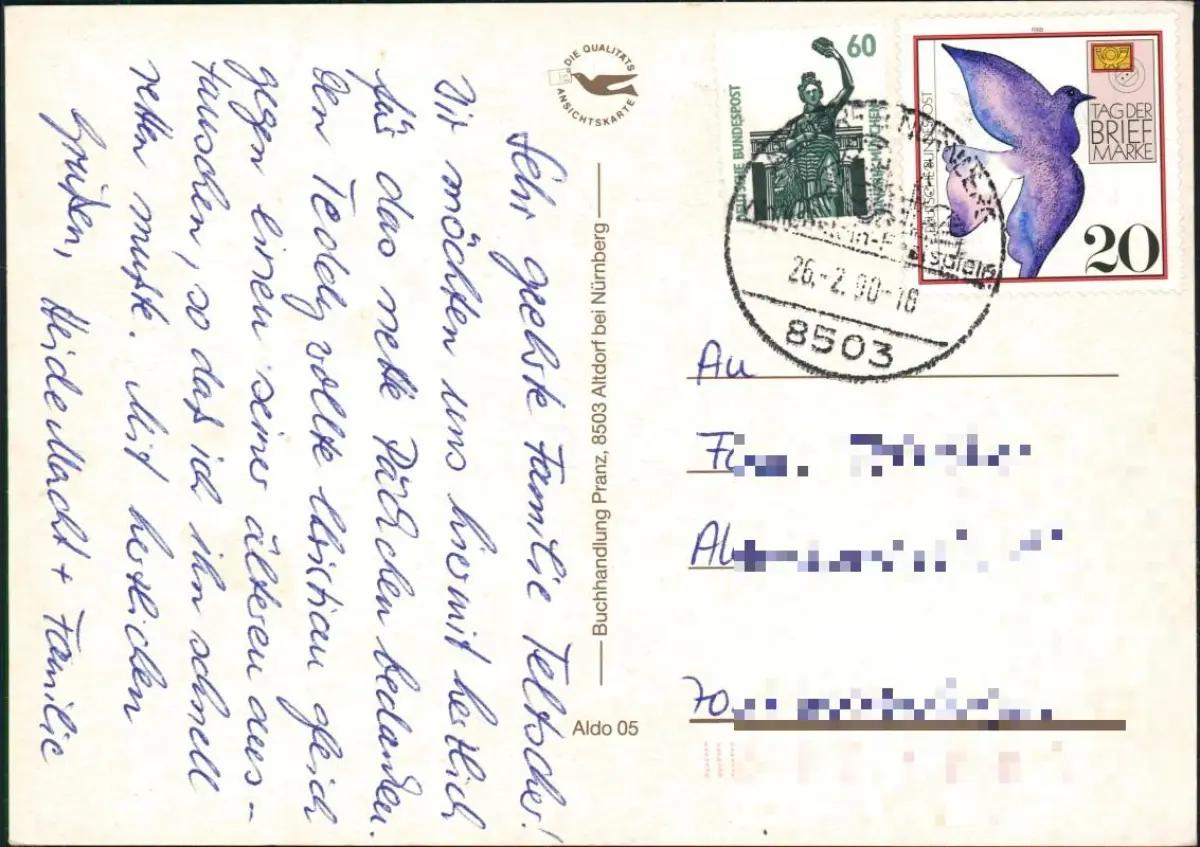 Sehr geehrte Familie Teltscher!
Wir möchten uns hiermit herzlich
für das nette Päckchen bedanken.
Den Teddy wollte Christian gleich
gegen einen seiner älteren aus-
tauschen, so daß ich ihn schnell
retten mußte. Mit herzlichen
Grüßen, Heide Macht + Familie
DIE QUALITÄTS
ANSICHTSKARTE
Buchhandlung Pranz, 8503 Altdorf bei Nürnberg
Aldo 05
60
DEUTSCHE BUNDESPOST
MÜNCHEN
TAG DER
BRIEF
MARKE
DEUTSCHE BUNDESPOST
20
26.-2.90-18
8503
An
70